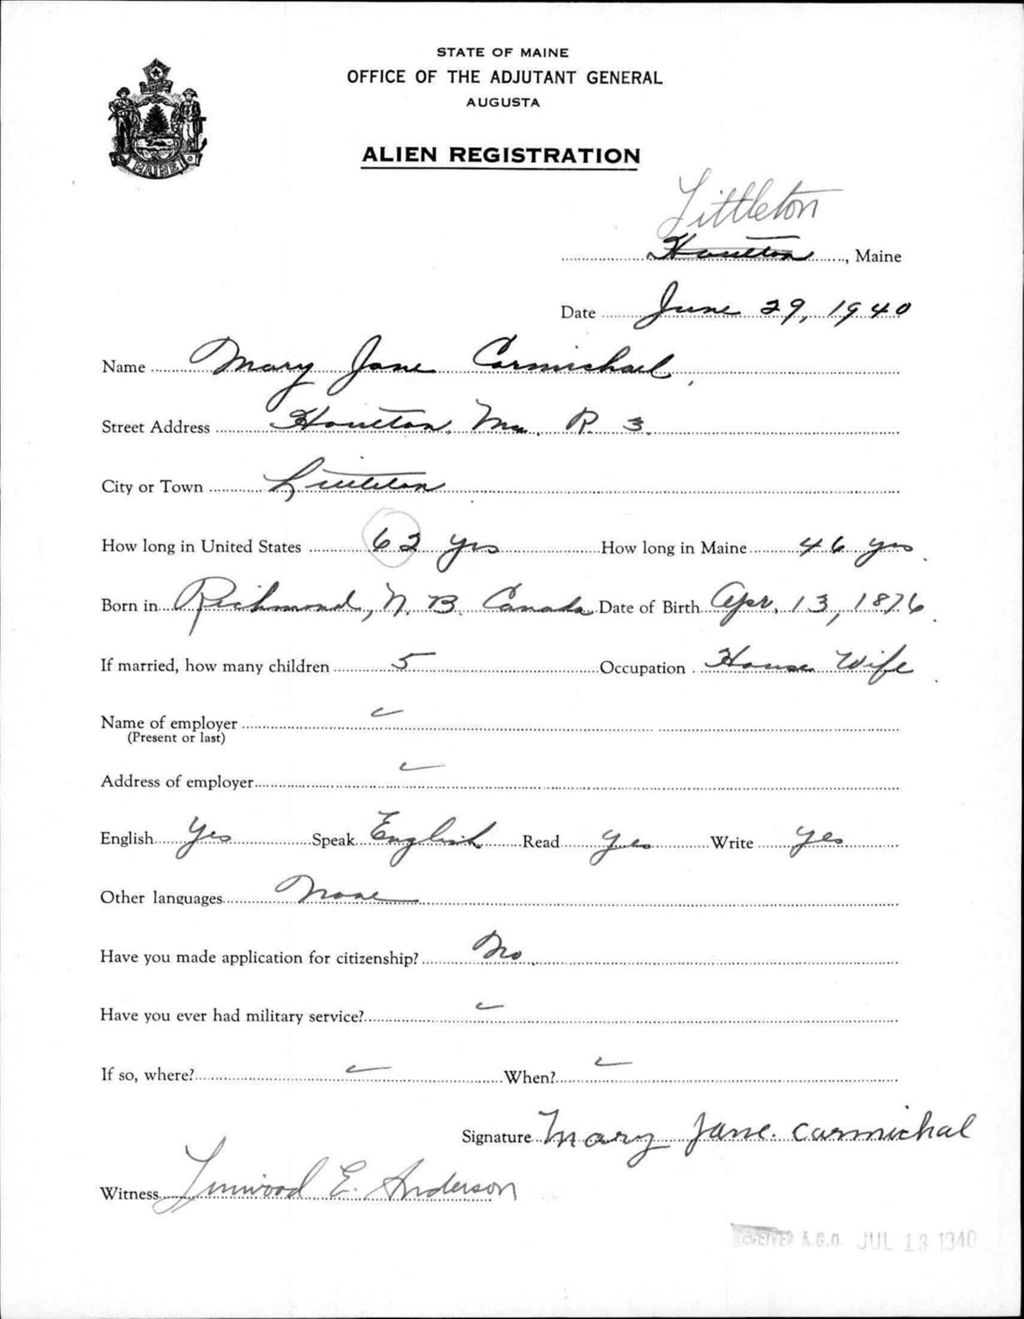 STATE OF MAINE
OFFICE OF THE ADJUTANT GENERAL
AUGUSTA
MAINE
ALIEN REGISTRATION
Littleton
Houlton, Maine
Date June 29, 1940
Name Mary Jane Carmichael
Street Address Houlton, Me. R. 3.
City or Town Littleton
How long in United States 62 yrs How long in Maine 46 yrs.
Born in Richmond, N. B. Canada Date of Birth Apr. 13, 1876.
If married, how many children 5 Occupation House Wife.
Name of employer
(Present or last)
Address of employer
English Yes Speak English Read Yes Write Yes
Other languages None
Have you made application for citizenship? No.
Have you ever had military service?
If so, where? When?
Signature Mary Jane. Carmichal
Witness Linwood E. Anderson
RECEIVED A.G.O. JUL 13 1940